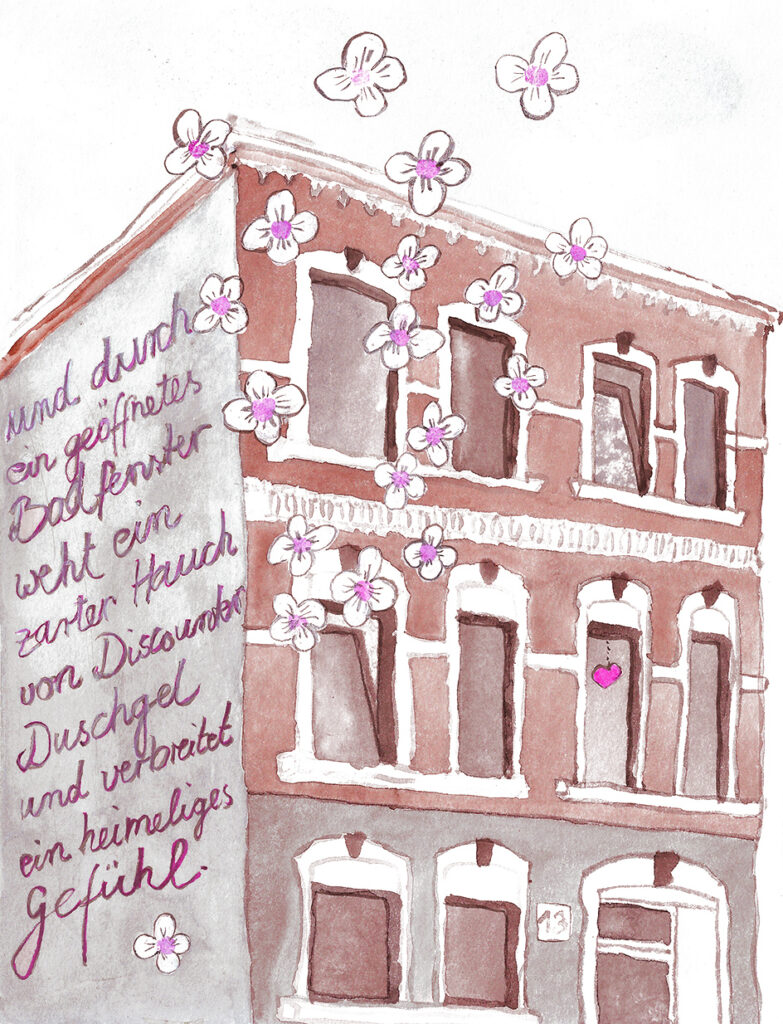 und durch
ein geöffnetes
Badfenster
weht ein
zarter Hauch
von Discounter
Duschgel
und verbreitet
ein heimeliges
Gefühl.
13